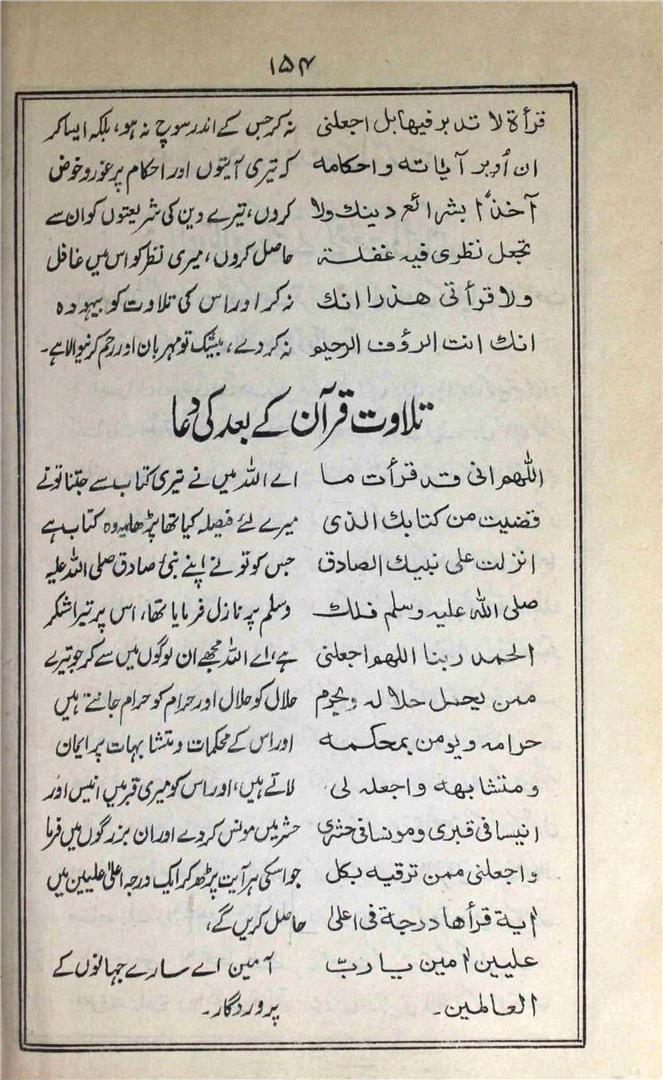 ۱۵۴
قرأة لا تدبر فيها بل اجعلنى
ان أدبر آياته واحكامه
آخذا بشرائع دينك ولا
تجعل نظرى فيه غفلة
ولا قرأتى هذرا انك
انك انت الرؤف الرحيم
نہ کر جس کے اندر سوچ نہ ہو، بلکہ ایسا کر
کہ تیری آیتوں اور احکام پر غور و خوض
کروں، تیرے دین کی شریعتوں کو ان سے
حاصل کروں، میری نظر کو اس میں غافل
نہ کر اور اس کی تلاوت کو بیہودہ
نہ کر دے، بیشک تو مہربان اور رحم کرنیوالا ہے۔
تلاوت قرآن کے بعد کی دعا
اللهم انى قد قرأت ما
قضيت من كتابك الذى
انزلت على نبيك الصادق
صلى الله عليه وسلم فلك
الحمد ربنا اللهم اجعلنى
ممن يحل حلاله ويحرم
حرامه ويومن بمحكمه
ومتشابهه واجعله لى
انيسا فى قبرى ومونسا فى حشرى
واجعلنى ممن ترقيه بكل
اية قرأها درجة فى اعلى
عليين امين يا رب
العالمين۔
اے اللہ میں نے تیری کتاب سے جتنا تو نے
میرے لئے فیصلہ کیا تھا پڑھا، یہ وہ کتاب ہے
جس کو تو نے اپنے نبی صادق صلی اللہ علیہ
وسلم پر نازل فرمایا تھا، اس پر تیرا شکر
ہے، اے اللہ مجھے ان لوگوں میں سے کر جو تیرے
حلال کو حلال اور حرام کو حرام جانتے ہیں
اور اس کے محکمات و متشابہات پر ایمان
لاتے ہیں، اور اس کو میری قبر میں انیس اور
حشر میں مونس کر دے اور ان بزرگوں میں فرما
جو اسکی ہر آیت پڑھ کر ایک درجہ اعلیٰ علیین میں
حاصل کریں گے،
آمین اے سارے جہانوں کے
پروردگار۔